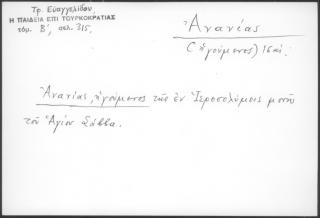 Τρ. Ευαγγελίδου,
Η ΠΑΙΔΕΙΑ ΕΠΙ ΤΟΥΡΚΟΚΡΑΤΙΑΣ
τόμ. Β', σελ. 315.
Ἀνανίας
(ἡγούμενος) 16 αἰ.
Ἀνανίας, ἡγούμενος τῆς ἐν Ἱεροσολύμοις μονῆς
τοῦ Ἁγίου Σάββα.